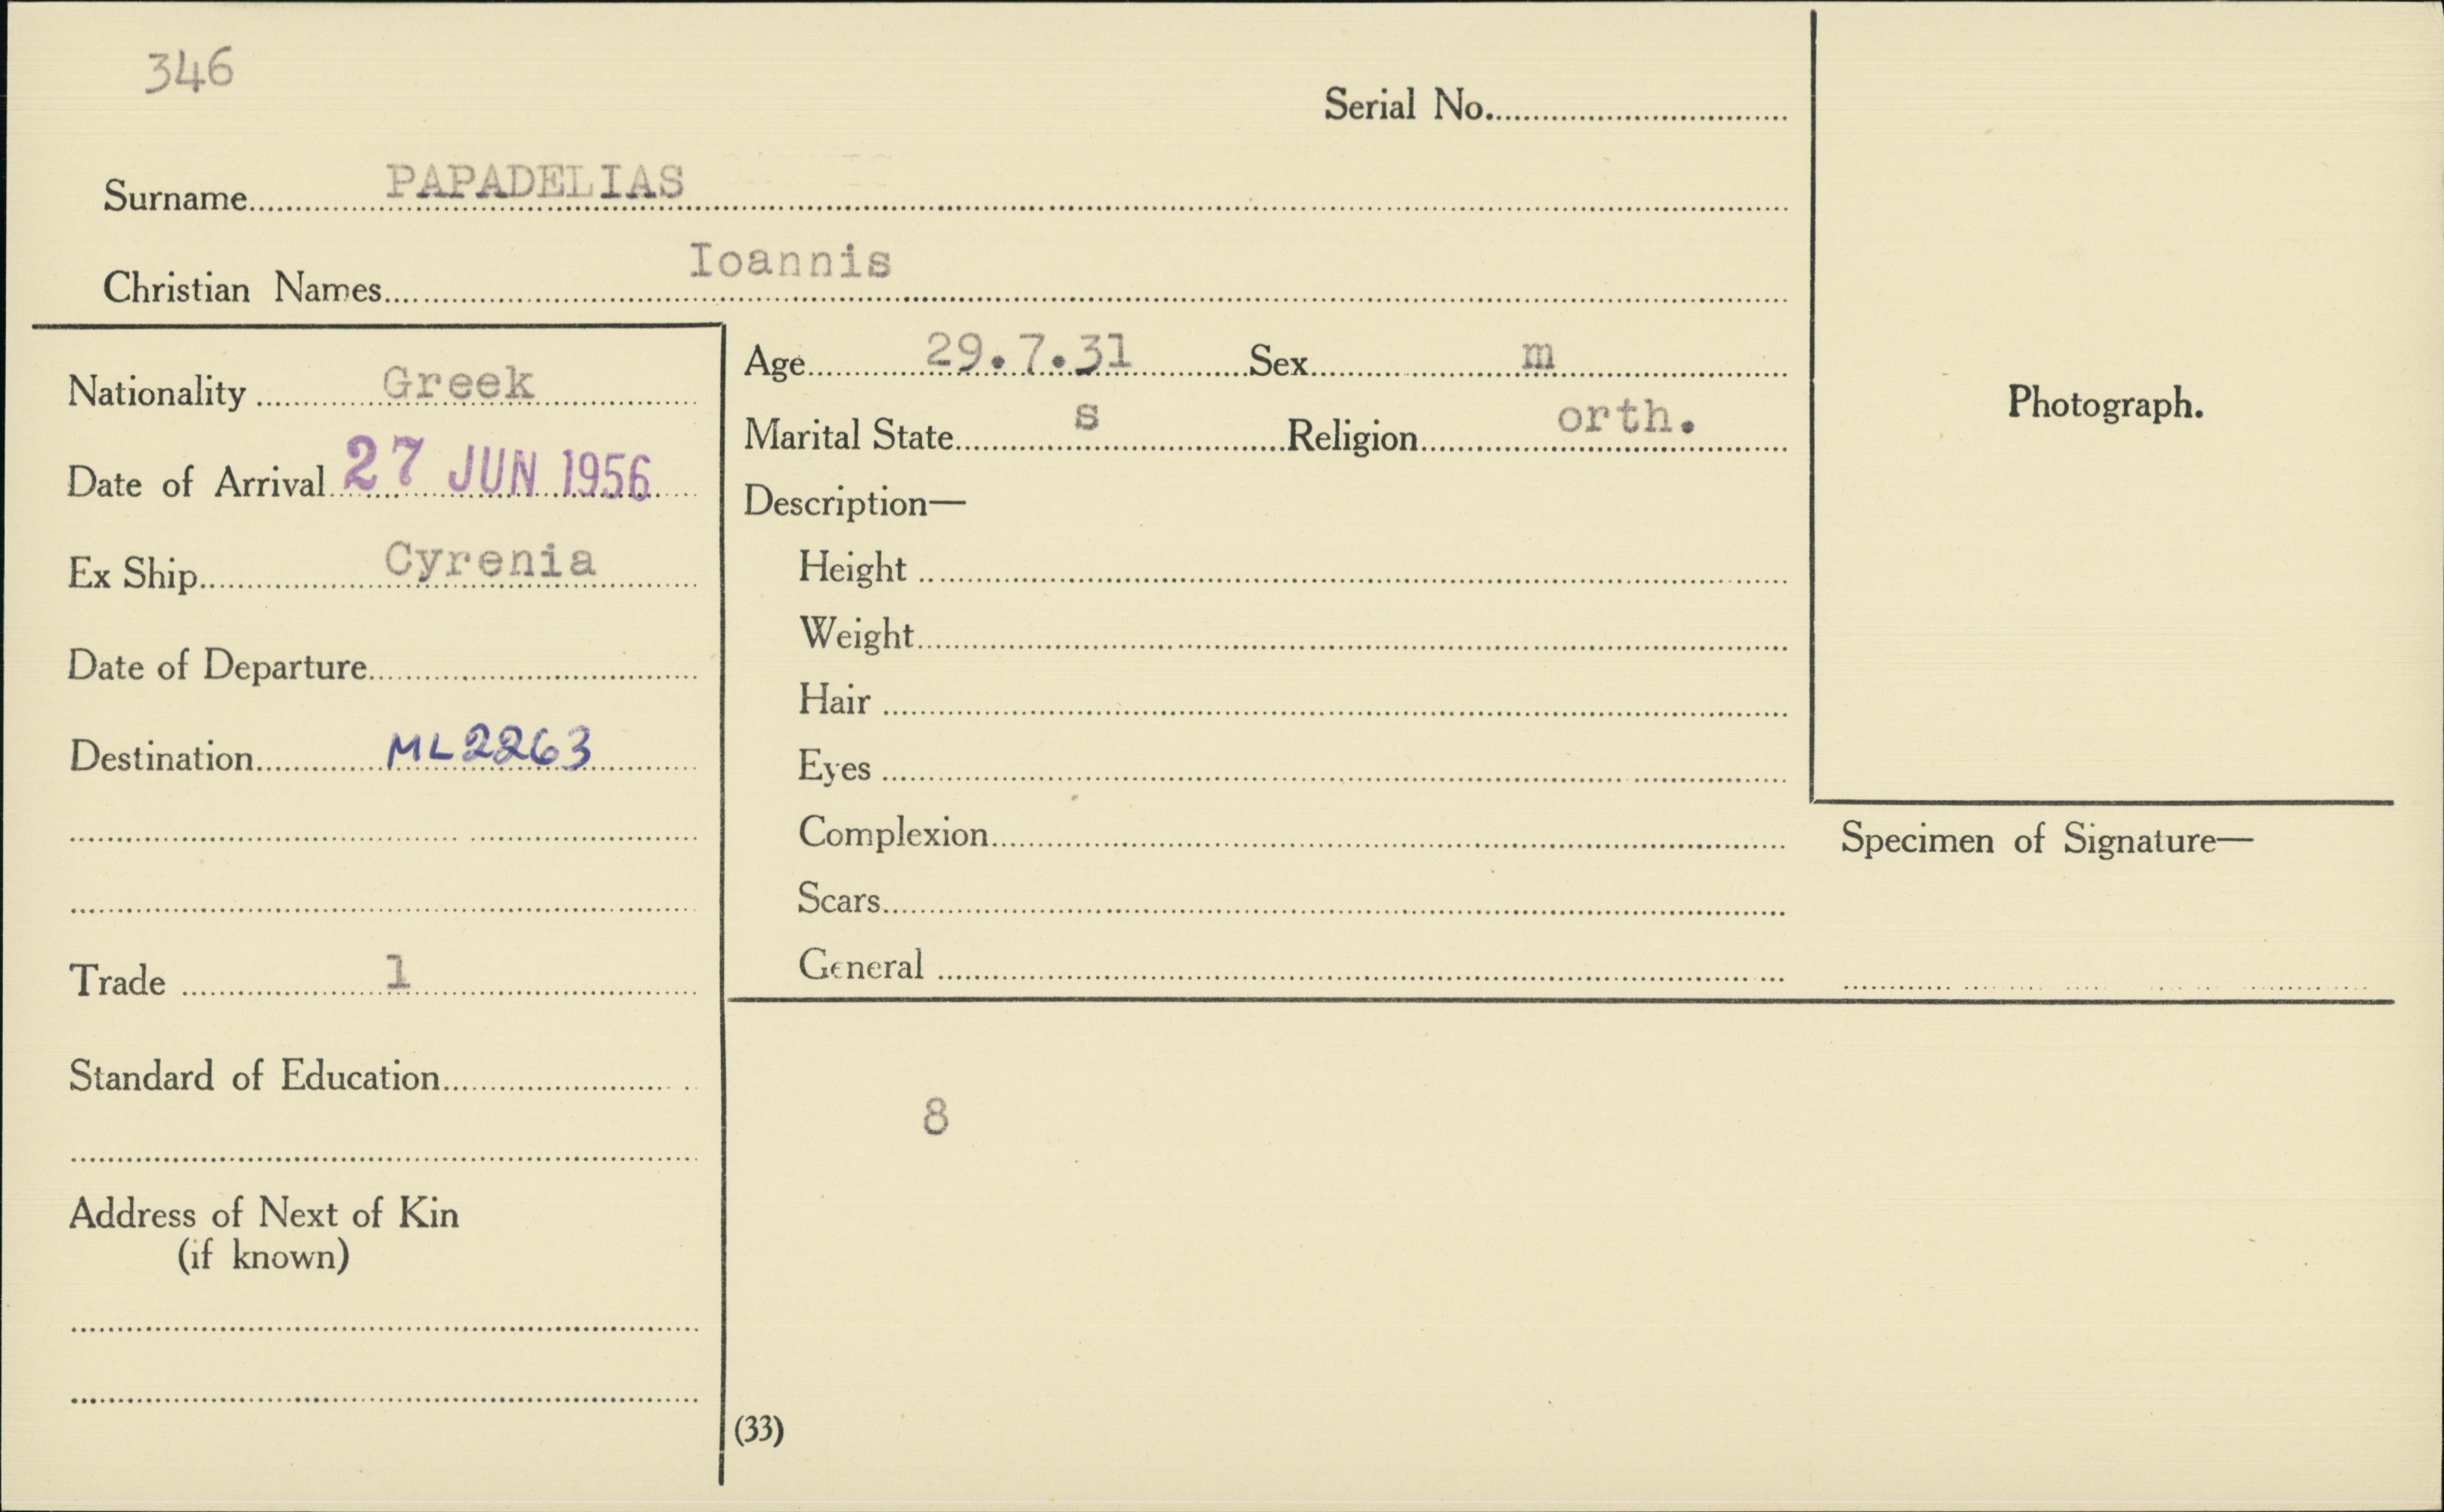 346
Serial No.
Surname PAPADELIAS
Christian Names Ioannis
Nationality Greek
Date of Arrival 27 JUN 1956
Ex Ship Cyrenia
Date of Departure
Destination ML2263
Trade 1
Standard of Education
Address of Next of Kin
(if known)
Age 29.7.31 Sex m
Marital State s Religion orth.
Description—
Height
Weight
Hair
Eyes
Complexion
Scars
General
Photograph.
Specimen of Signature—
8
(33)